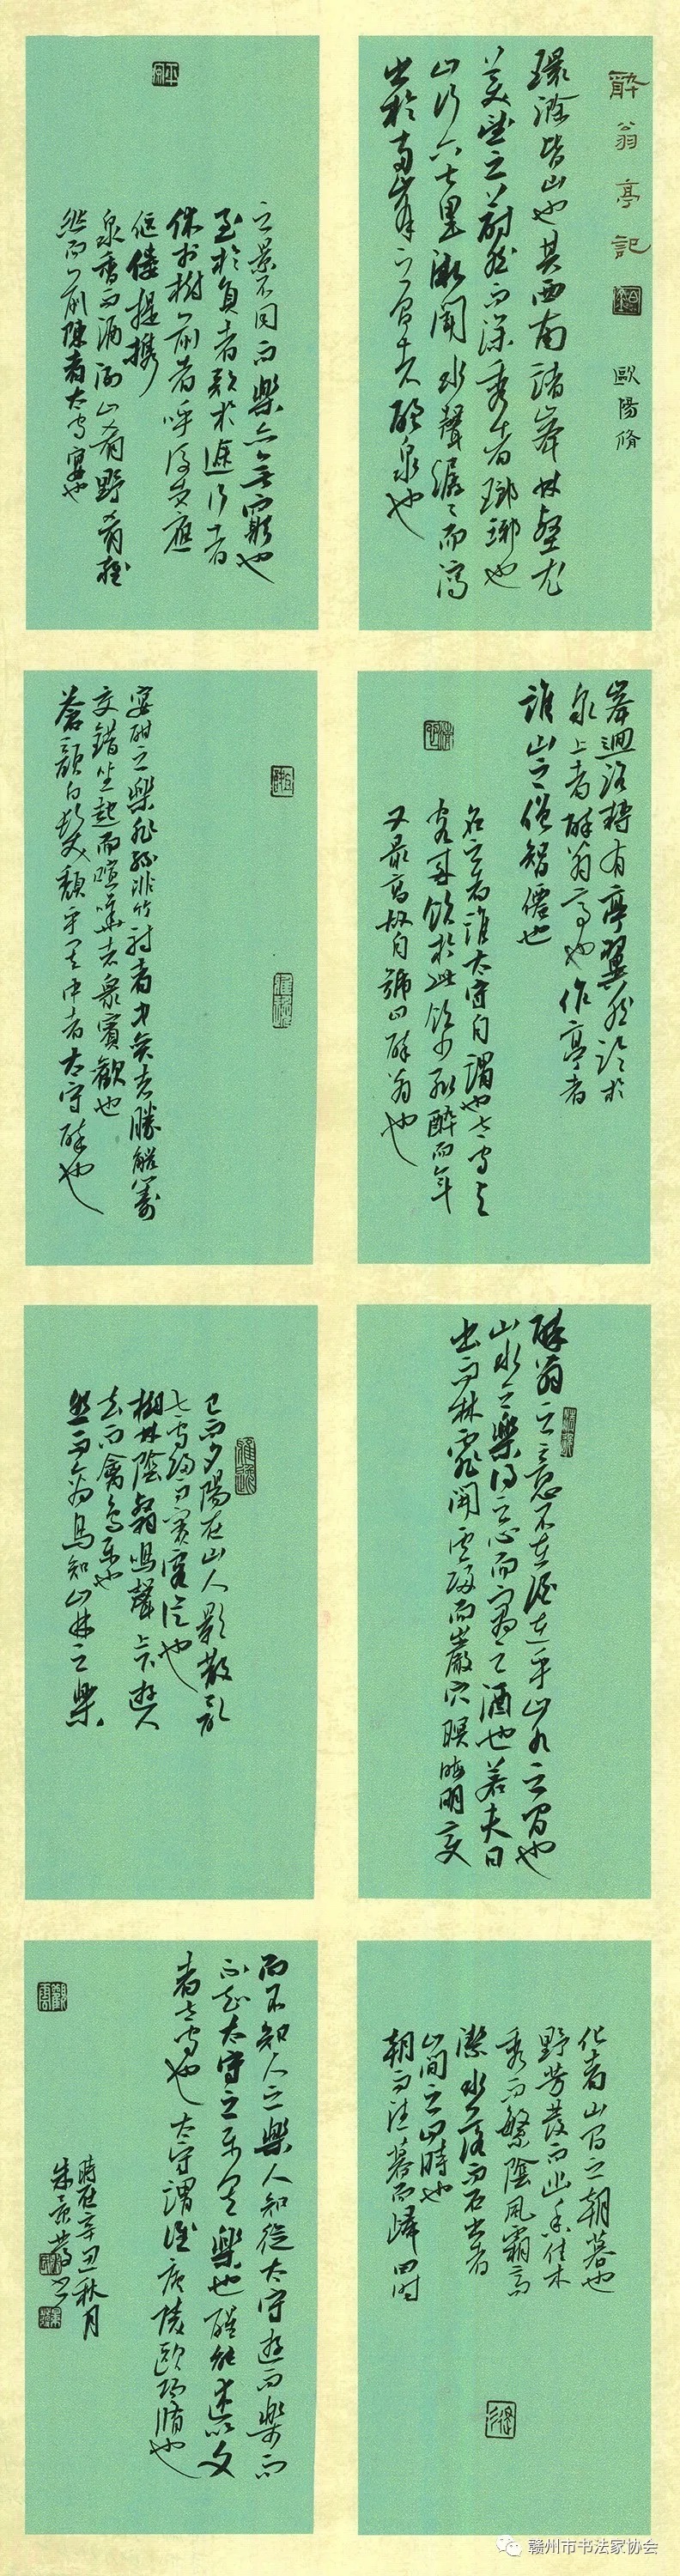 醉翁亭記 歐陽脩
環滁皆山也其西南諸峰林壑尤
美望之蔚然而深秀者瑯琊也
山行六七里漸聞水聲潺々而瀉
出於兩峰之間者釀泉也
峰迴路轉有亭翼然臨於
泉上者醉翁亭也作亭者
誰山之僧智僊也
名之者誰太守自謂也太守与
客來飲於此飲少輒醉而年
又最高故自號曰醉翁也
醉翁之意不在酒在乎山水之間也
山水之樂得之心而寓之酒也若夫日
出而林霏開雲歸而巖穴暝晦明變
化者山間之朝暮也
野芳發而幽香佳木
秀而繁陰風霜高
潔水落而石出者
山間之四時也
朝而往暮而歸四時
之景不同而樂亦無窮也
至於負者歌於途行者
休於樹前者呼後者應
傴僂提攜
泉香而酒洌山肴野蔌雜
然而前陳者太守宴也
宴酣之樂非絲非竹射者中弈者勝觥籌
交錯坐起而喧嘩者衆賓歡也
蒼顏白髮頹乎其中者太守醉也
已而夕陽在山人影散亂
太守歸而賓客從也
樹林陰翳鳴聲上下遊人
去而禽鳥樂也
然而禽鳥知山林之樂
而不知人之樂人知從太守遊而樂而
不知太守之樂其樂也醒能述以文
者太守也太守謂誰廬陵歐陽脩也
時在辛丑秋月
赣州市书法家协会